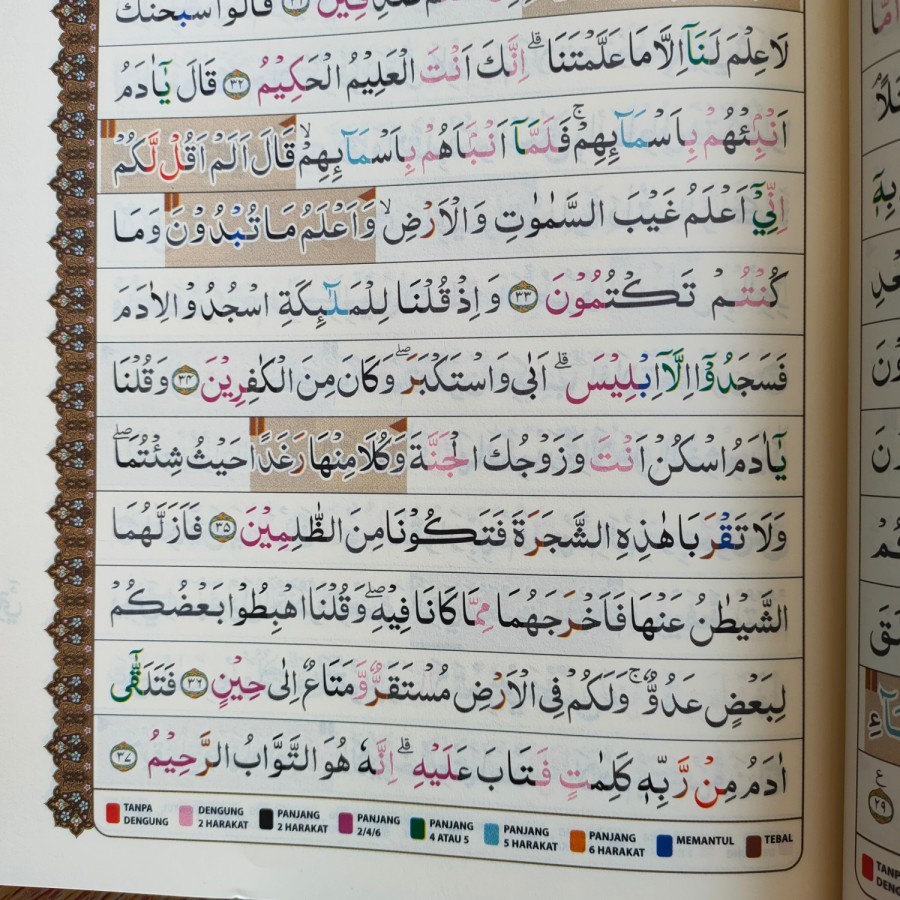 قَالُوْا سُبْحٰنَكَ
لَا عِلْمَ لَنَآ اِلَّا مَا عَلَّمْتَنَا ۗ اِنَّكَ اَنْتَ الْعَلِيْمُ الْحَكِيْمُ ٣٢ قَالَ يٰٓاٰدَمُ
اَنْۢبِئْهُمْ بِاَسْمَاۤىِٕهِمْ ۚ فَلَمَّآ اَنْۢبَاَهُمْ بِاَسْمَاۤىِٕهِمْۙ قَالَ اَلَمْ اَقُلْ لَّكُمْ
اِنِّيْٓ اَعْلَمُ غَيْبَ السَّمٰوٰتِ وَالْاَرْضِۙ وَاَعْلَمُ مَا تُبْدُوْنَ وَمَا
كُنْتُمْ تَكْتُمُوْنَ ٣٣ وَاِذْ قُلْنَا لِلْمَلٰۤىِٕكَةِ اسْجُدُوْا لِاٰدَمَ
فَسَجَدُوْٓا اِلَّآ اِبْلِيْسَۗ اَبٰى وَاسْتَكْبَرَۖ وَكَانَ مِنَ الْكٰفِرِيْنَ ٣٤ وَقُلْنَا
يٰٓاٰدَمُ اسْكُنْ اَنْتَ وَزَوْجُكَ الْجَنَّةَ وَكُلَا مِنْهَا رَغَدًا حَيْثُ شِئْتُمَاۖ
وَلَا تَقْرَبَا هٰذِهِ الشَّجَرَةَ فَتَكُوْنَا مِنَ الظّٰلِمِيْنَ ٣٥ فَاَزَلَّهُمَا
الشَّيْطٰنُ عَنْهَا فَاَخْرَجَهُمَا مِمَّا كَانَا فِيْهِۖ وَقُلْنَا اهْبِطُوْا بَعْضُكُمْ
لِبَعْضٍ عَدُوٌّ ۚ وَلَكُمْ فِى الْاَرْضِ مُسْتَقَرٌّ وَّمَتَاعٌ اِلٰى حِيْنٍ ٣٦ فَتَلَقّٰٓى
اٰدَمُ مِنْ رَّبِّهٖ كَلِمٰتٍ فَتَابَ عَلَيْهِ ۗ اِنَّهٗ هُوَ التَّوَّابُ الرَّحِيْمُ ٣٧
TANPA DENGUNG
DENGUNG 2 HARAKAT
PANJANG 2 HARAKAT
PANJANG 2/4/6
PANJANG 4 ATAU 5
PANJANG 5 HARAKAT
PANJANG 6 HARAKAT
MEMANTUL
TEBAL
ع
٢٩